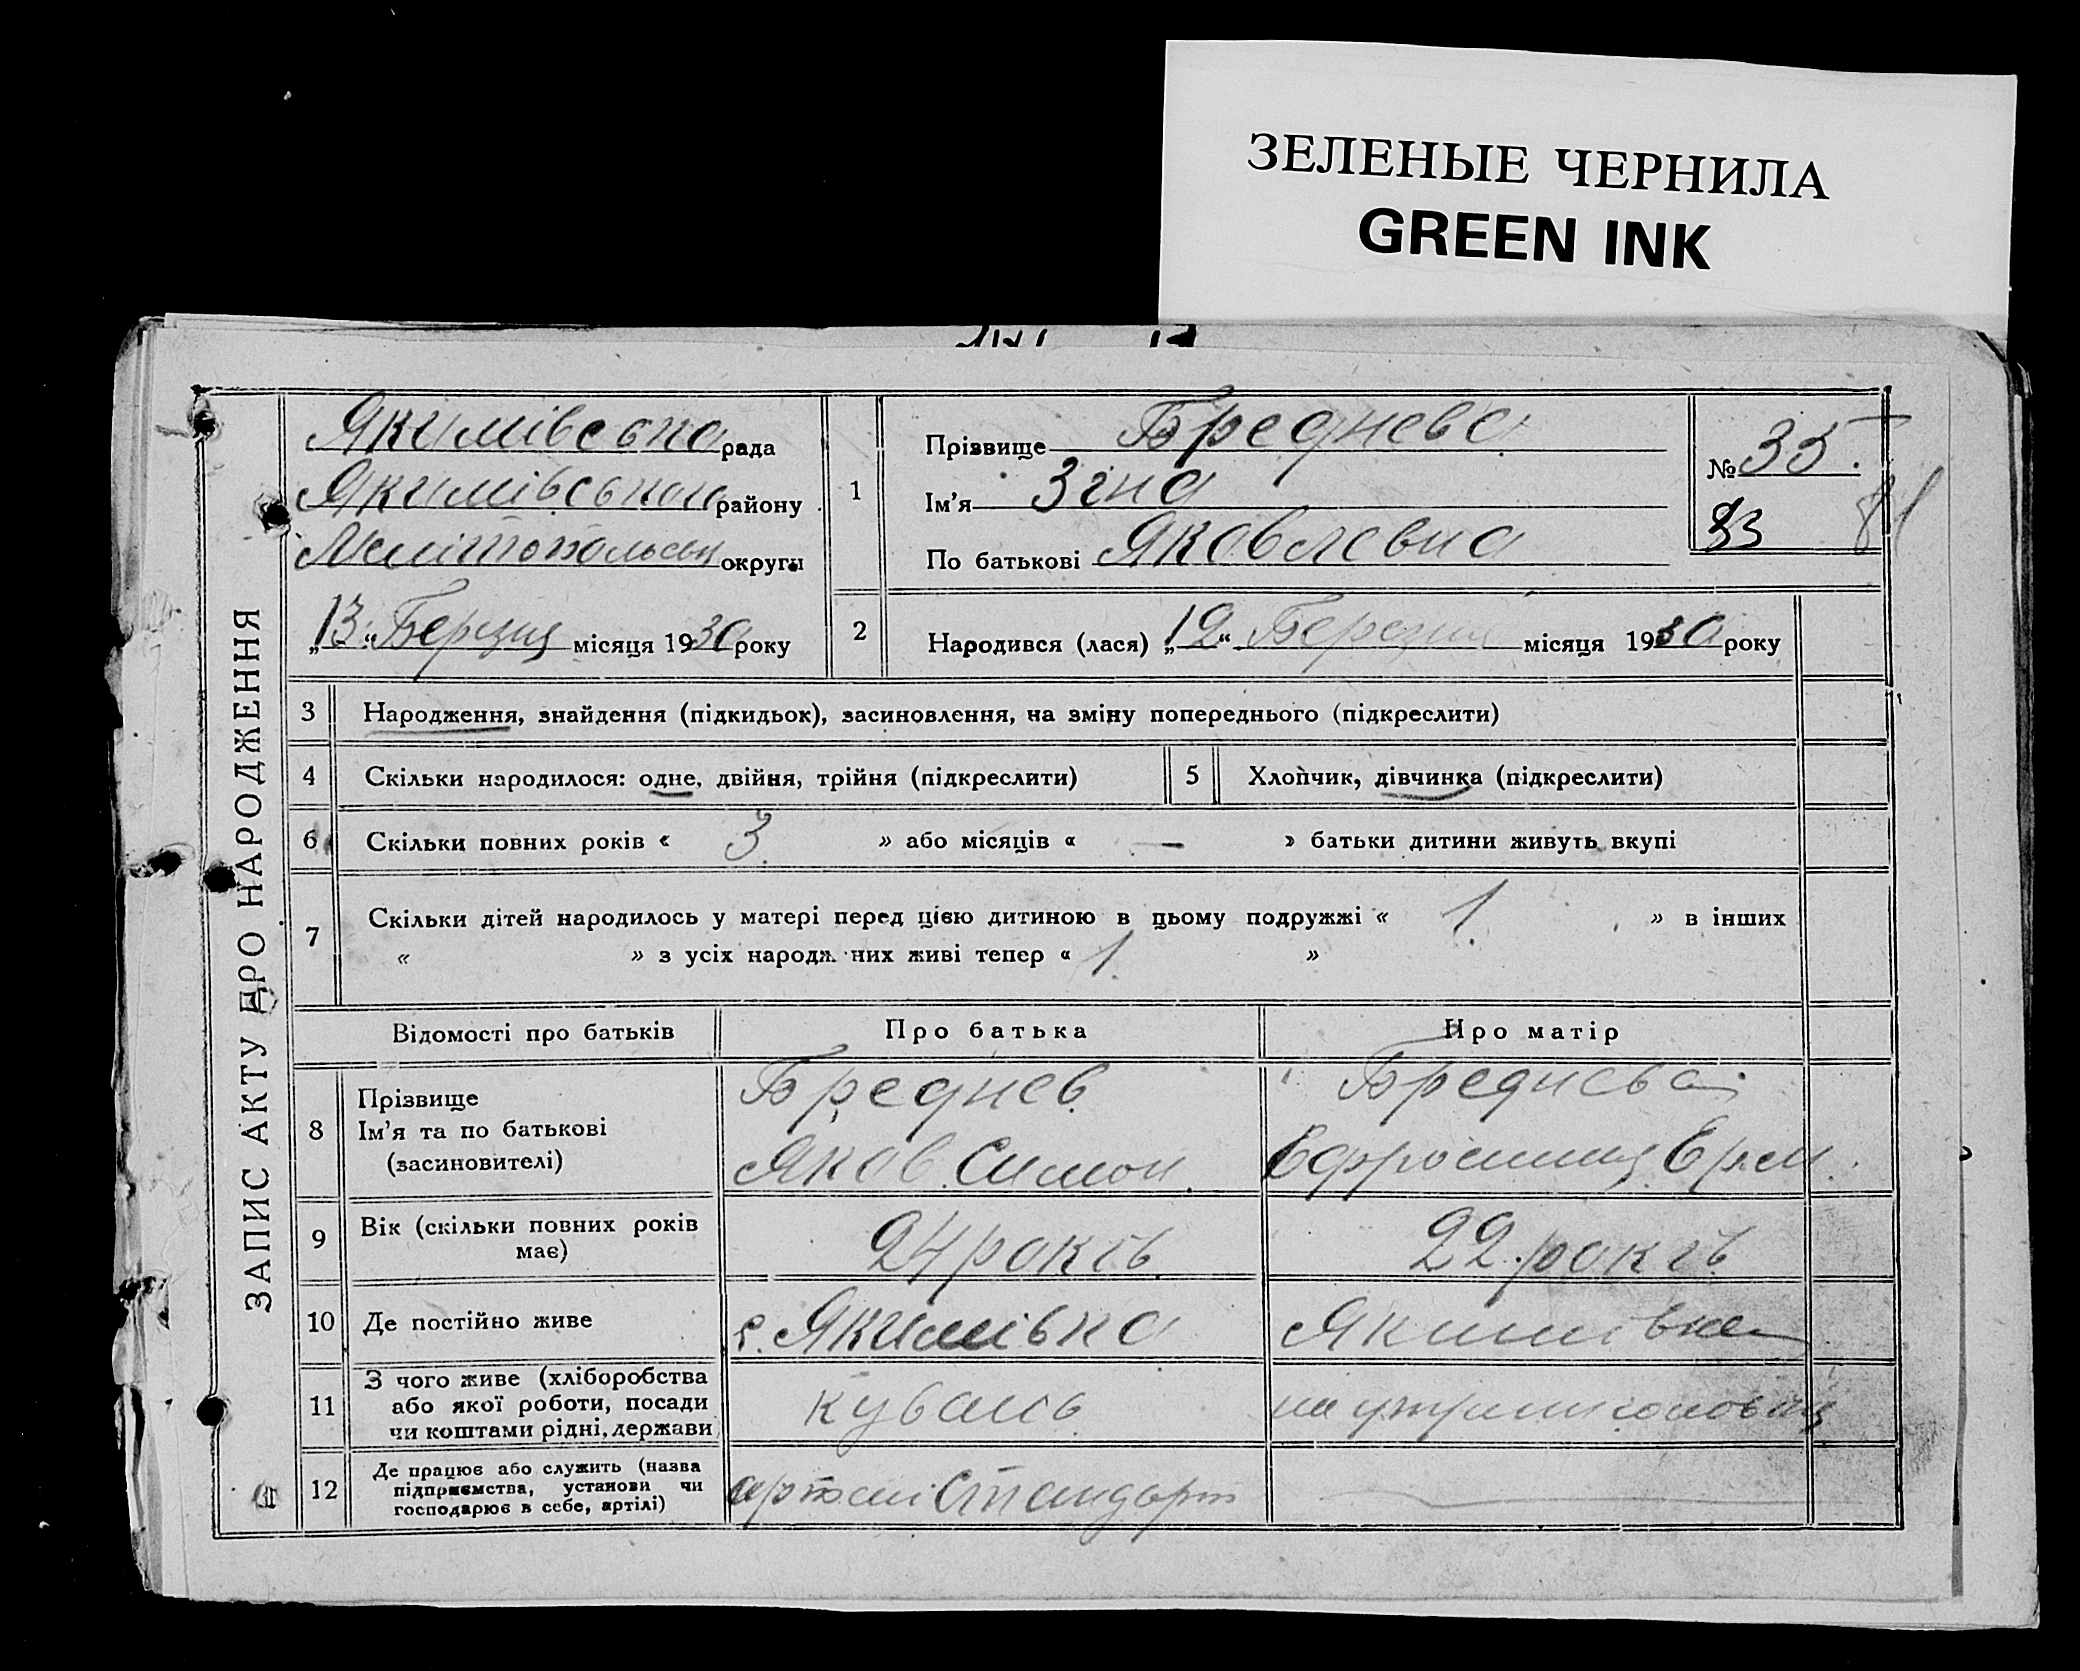 ЗЕЛЕНЫЕ ЧЕРНИЛА
GREEN INK
ЗАПИС АКТУ ПРО НАРОДЖЕННЯ
Якимівська рада
Якимівського району
Мелітопольськ округи
„13“ Березня місяця 1930 року
1
Прізвище Бреднева
Ім'я Зіна
По батькові Яковлевна
№ 35.
83
81
2
Народився (лася) „12“ Березня місяця 1930 року
3 Народження, знайдення (підкидьок), засиновлення, на зміну попереднього (підкреслити)
4 Скільки народилося: одне, двійня, трійня (підкреслити)
5 Хлопчик, дівчинка (підкреслити)
6 Скільки повних років « 3 » або місяців « — » батьки дитини живуть вкупі
7 Скільки дітей народилось у матері перед цією дитиною в цьому подружжі « 1. » в інших
« » з усіх народж них живі тепер « 1. »
Відомості про батьків Про батька Про матір
8 Прізвище
Ім'я та по батькові
(засиновителі)
Бреднев
Яков Симон.
Бреднева
Ефросиния Ерм.
9 Вік (скільки повних років
має)
24 років
22 років
10 Де постійно живе с. Якимівка Якимівка
11 З чого живе (хліборобства
або якої роботи, посади
чи коштами рідні, держави
на утрим чоловіка
12 Де працює або служить (назва
підприємства, установи чи
господарює в себе, артілі)
артелі Стандарт